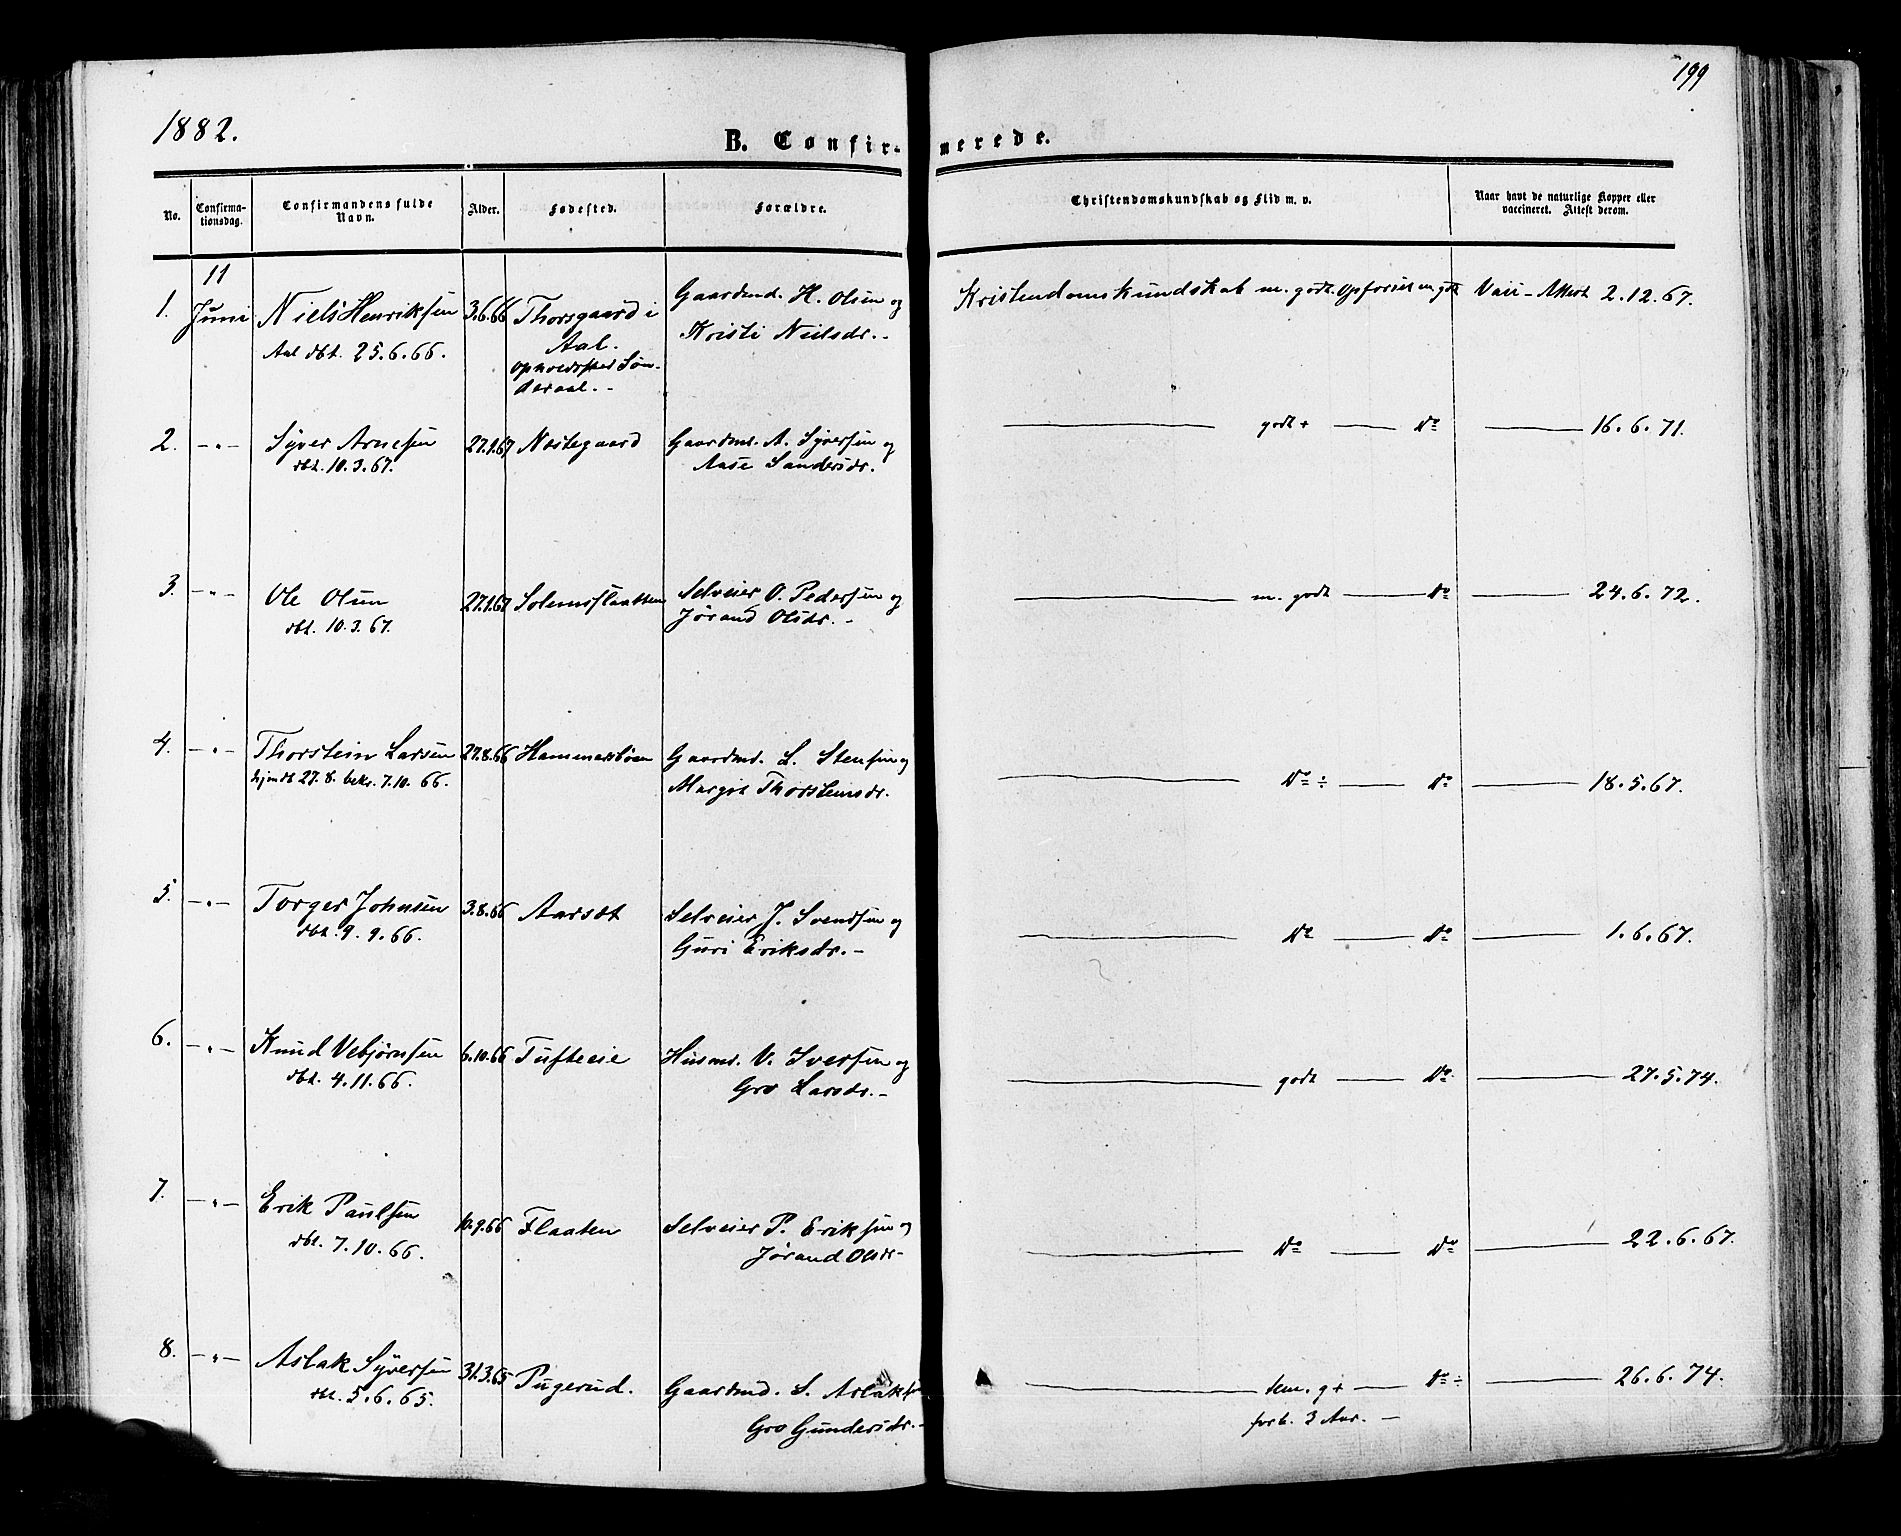 199
1882.
B. Confirmerede.
No. Confirmationsdag. Confirmandens fulde Navn. Alder. Fødested. Forældre. Christendomskundskab og Flid m. v. Naar havt de naturlige Kopper eller vaccineret. Attest derom.
11
1. Juni Niels Henriksen 3.6.66 Thorsgaard i Gaardmd. H. Olsen og Kristendomskundskab m. godt. Opførsel m. godt Vacc-Attest 2.12.67.
Aal dbt. 25.6.66. Aal. Kristi Nielsdr.-
opholdssted Søn-
deraal.-
2. -"- Syver Arnesen 27.1.67 Nestegaard Gaardmd. A. Syversen og godt + do 16.6.71.
dbt. 10.3.67. Aase Sandersdr.
3. -"- Ole Olsen 27.1.67 Solemsslaatten Selveier O. Pedersen og m. godt do 24.6.72.
dbt. 10.3.67. Jørand Olsdr.-
4. -"- Thorstein Larsen 27.8.66 Hammersbøen Gaardmd. L. Stensen og do ÷ do 18.5.67.
hjmdt 27.8. bekr. 7.10.66. Margit Thorsteinsdr.
5. -"- Torger Johnsen 3.8.66 Aarset Selveier J. Svendsen og do do 1.6.67.
dbt. 9.9.66. Guri Eriksdr.-
6. -"- Knud Vebjørnsen 6.10.66 Tufteeie Husmd. V. Iversen og godt do 27.5.74.
dbt. 4.11.66. Gro Larsdr.-
7. -"- Erik Paulsen 10.9.66 Flaaten Selveier P. Eriksen og do do 22.6.67.
dbt. 7.10.66. Jørand Olsdr-
8. -"- Aslak Syversen 31.3.65 Pugerud. Gaardmd. S. Aslaks. tem. g + do ÷ 26.6.74.
dbt. 5.6.65. Gro Gundersdr.- forb. 3 Aar.-